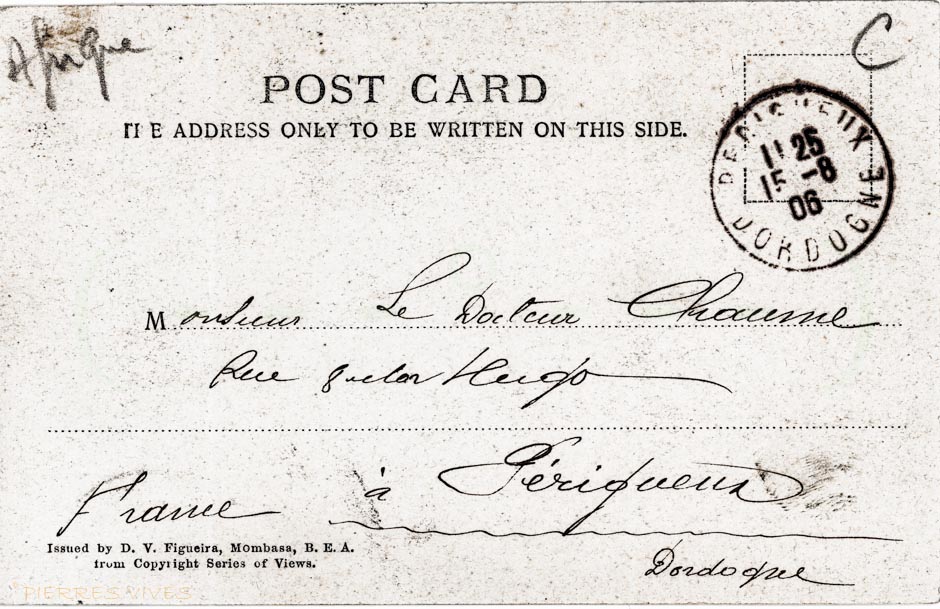 Afrique
C
POST CARD
THE ADDRESS ONLY TO BE WRITTEN ON THIS SIDE.
PERIGUEUX
11 25
15 -8
06
DORDOGNE
Monsieur Le Docteur Chaume
Rue Victor Hugo
à Périgueux
France
Dordogne
Issued by D. V. Figueira, Mombasa, B. E. A.
from Copyright Series of Views.
PIERRES VIVES